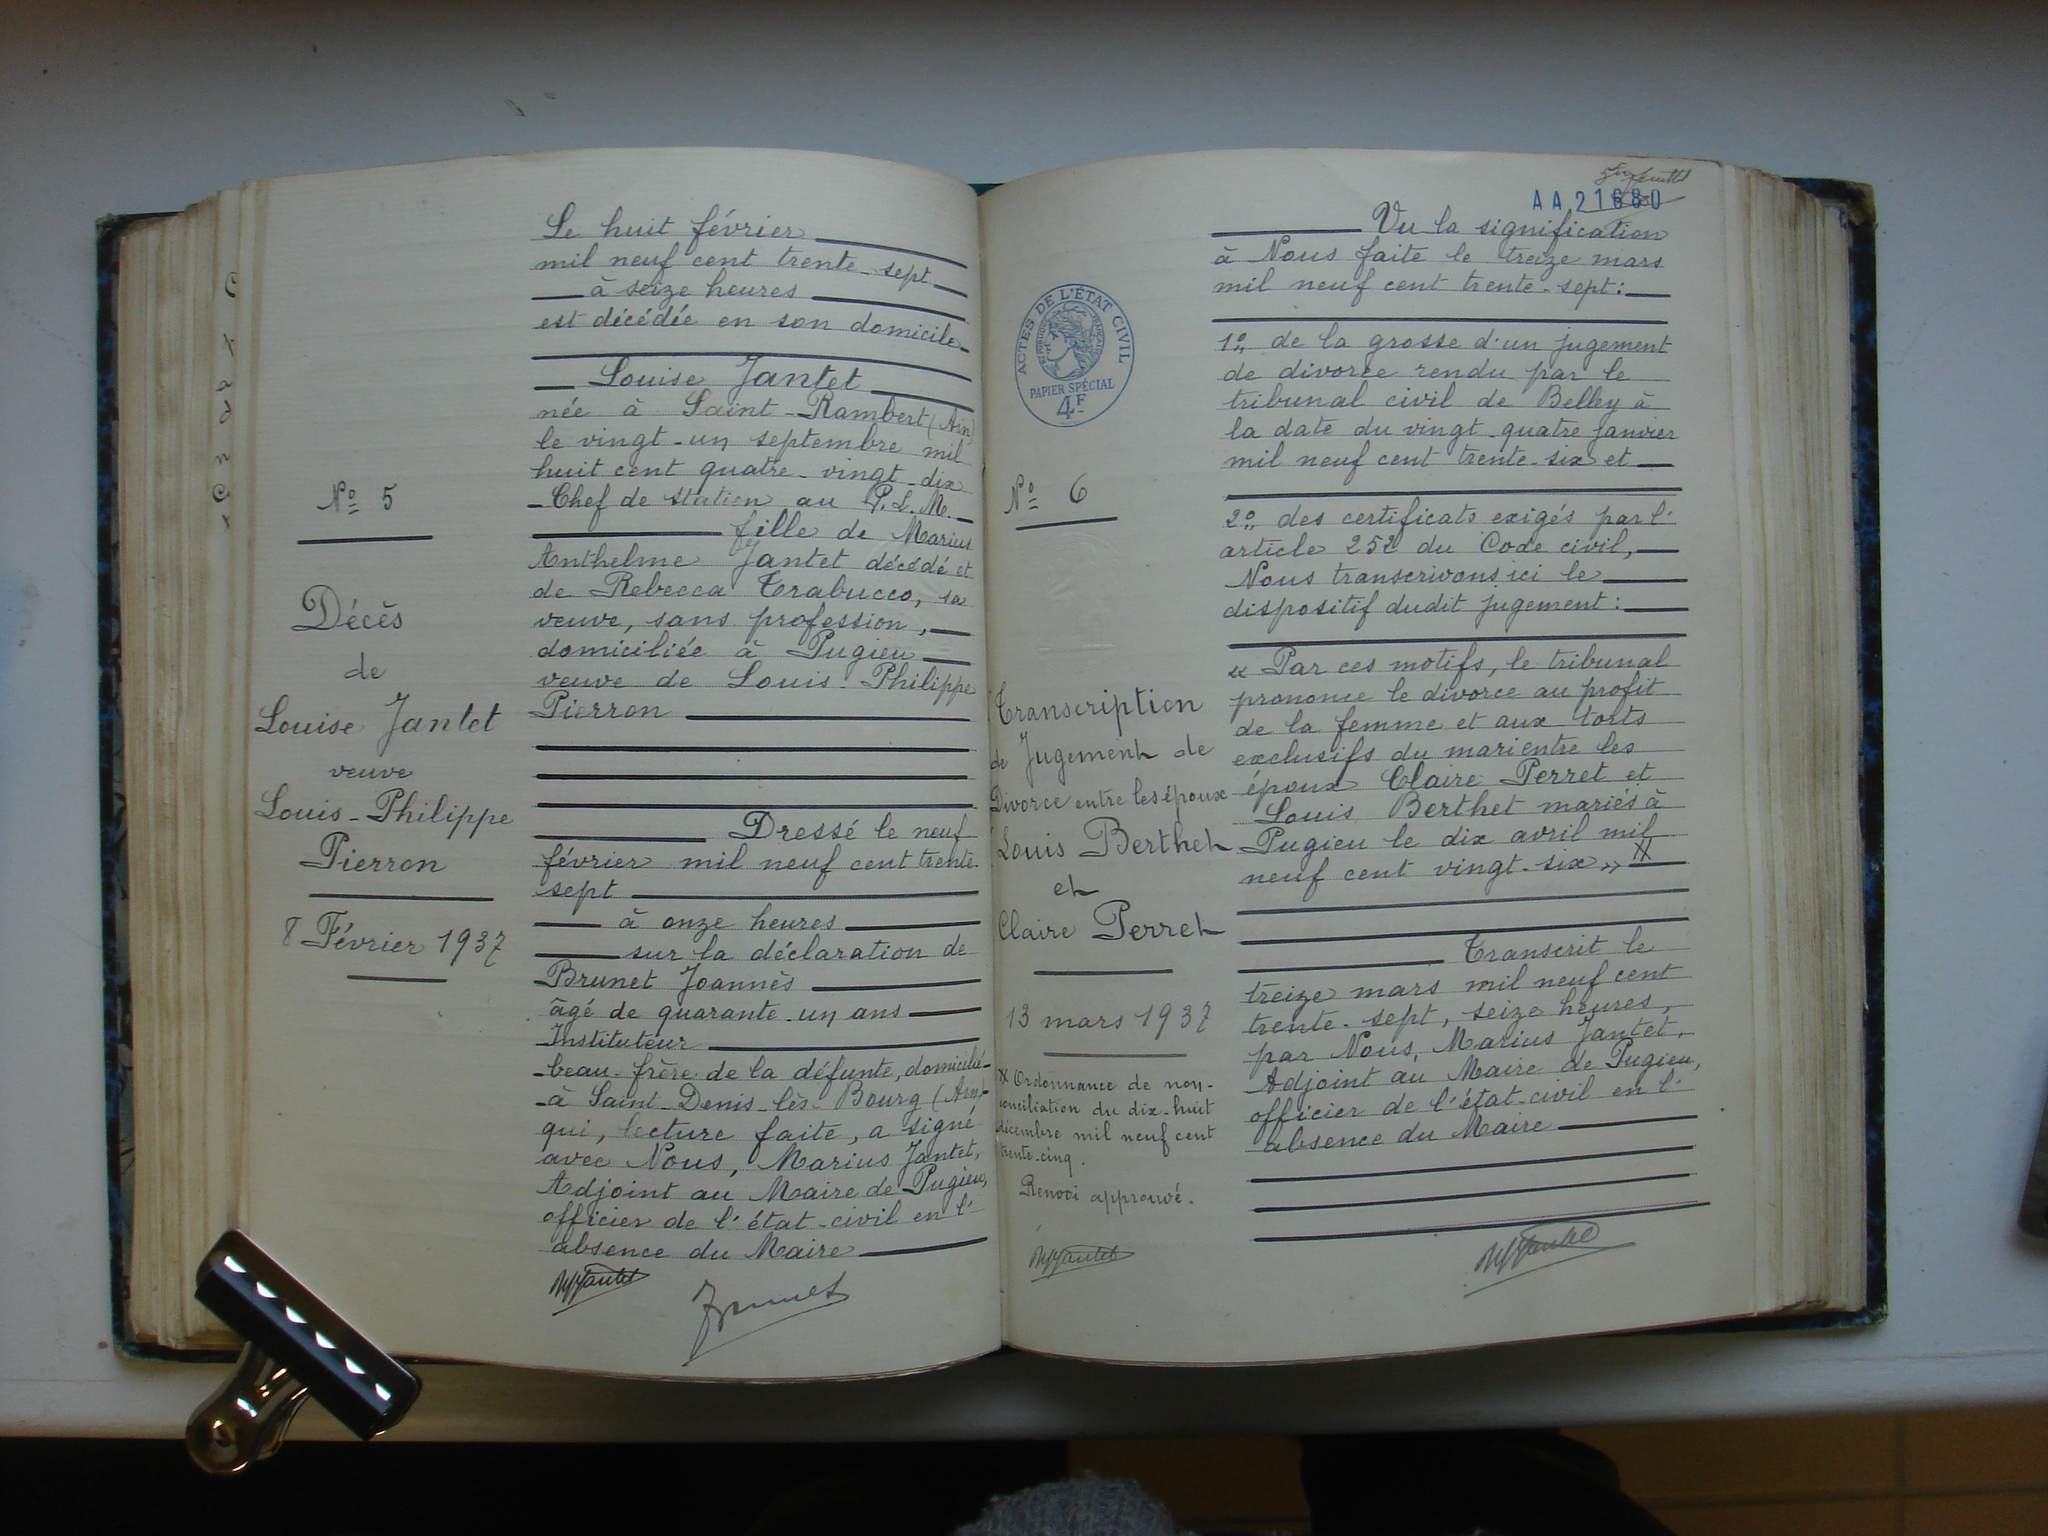 Nº 5
Décès
de
Louise Jantet
veuve
Louis-Philippe
Pierron
8 Février 1937
Le huit février
mil neuf cent trente-sept
à seize heures
est décédée en son domicile
Louise Jantet
née à Saint-Rambert (Ain)
le vingt-un septembre mil
huit cent quatre-vingt-dix
Chef de station au P.L.M.
fille de Marius
Anthelme Jantet décédé et
de Rebecca Trabucco, sa
veuve, sans profession,
domiciliée à Pugieu
veuve de Louis-Philippe
Pierron
Dressé le neuf
février mil neuf cent trente-
sept
à onze heures
sur la déclaration de
Brunet Joannès
âgé de quarante-un ans
Instituteur
beau-frère de la défunte, domicilié
à Saint-Denis-lès-Bourg (Ain)
qui, lecture faite, a signé
avec Nous, Marius Jantet,
Adjoint au Maire de Pugieu,
officier de l'état-civil en l'
absence du Maire
Jantet
Brunet
AA 21680
ACTES DE L'ÉTAT CIVIL
PAPIER SPÉCIAL
4F
Nº 6
Transcription
de Jugement de
Divorce entre les époux
Louis Berthet
et
Claire Perret
13 mars 1937
X Ordonnance de non-
conciliation du dix-huit
décembre mil neuf cent
trente-cinq.
Renvoi approuvé.
Jantet
Vu la signification
à Nous faite le treize mars
mil neuf cent trente-sept:
1º de la grosse d'un jugement
de divorce rendu par le
tribunal civil de Belley à
la date du vingt-quatre janvier
mil neuf cent trente-six et
2º des certificats exigés par l'
article 252 du Code civil,
Nous transcrivons ici le
dispositif dudit jugement:
« Par ces motifs, le tribunal
prononce le divorce au profit
de la femme et aux torts
exclusifs du mari entre les
époux Claire Perret et
Louis Berthet mariés à
Pugieu le dix avril mil
neuf cent vingt-six » X
Transcrit le
treize mars mil neuf cent
trente-sept, seize heures,
par Nous, Marius Jantet,
Adjoint au Maire de Pugieu,
officier de l'état-civil en l'
absence du Maire
Jantet